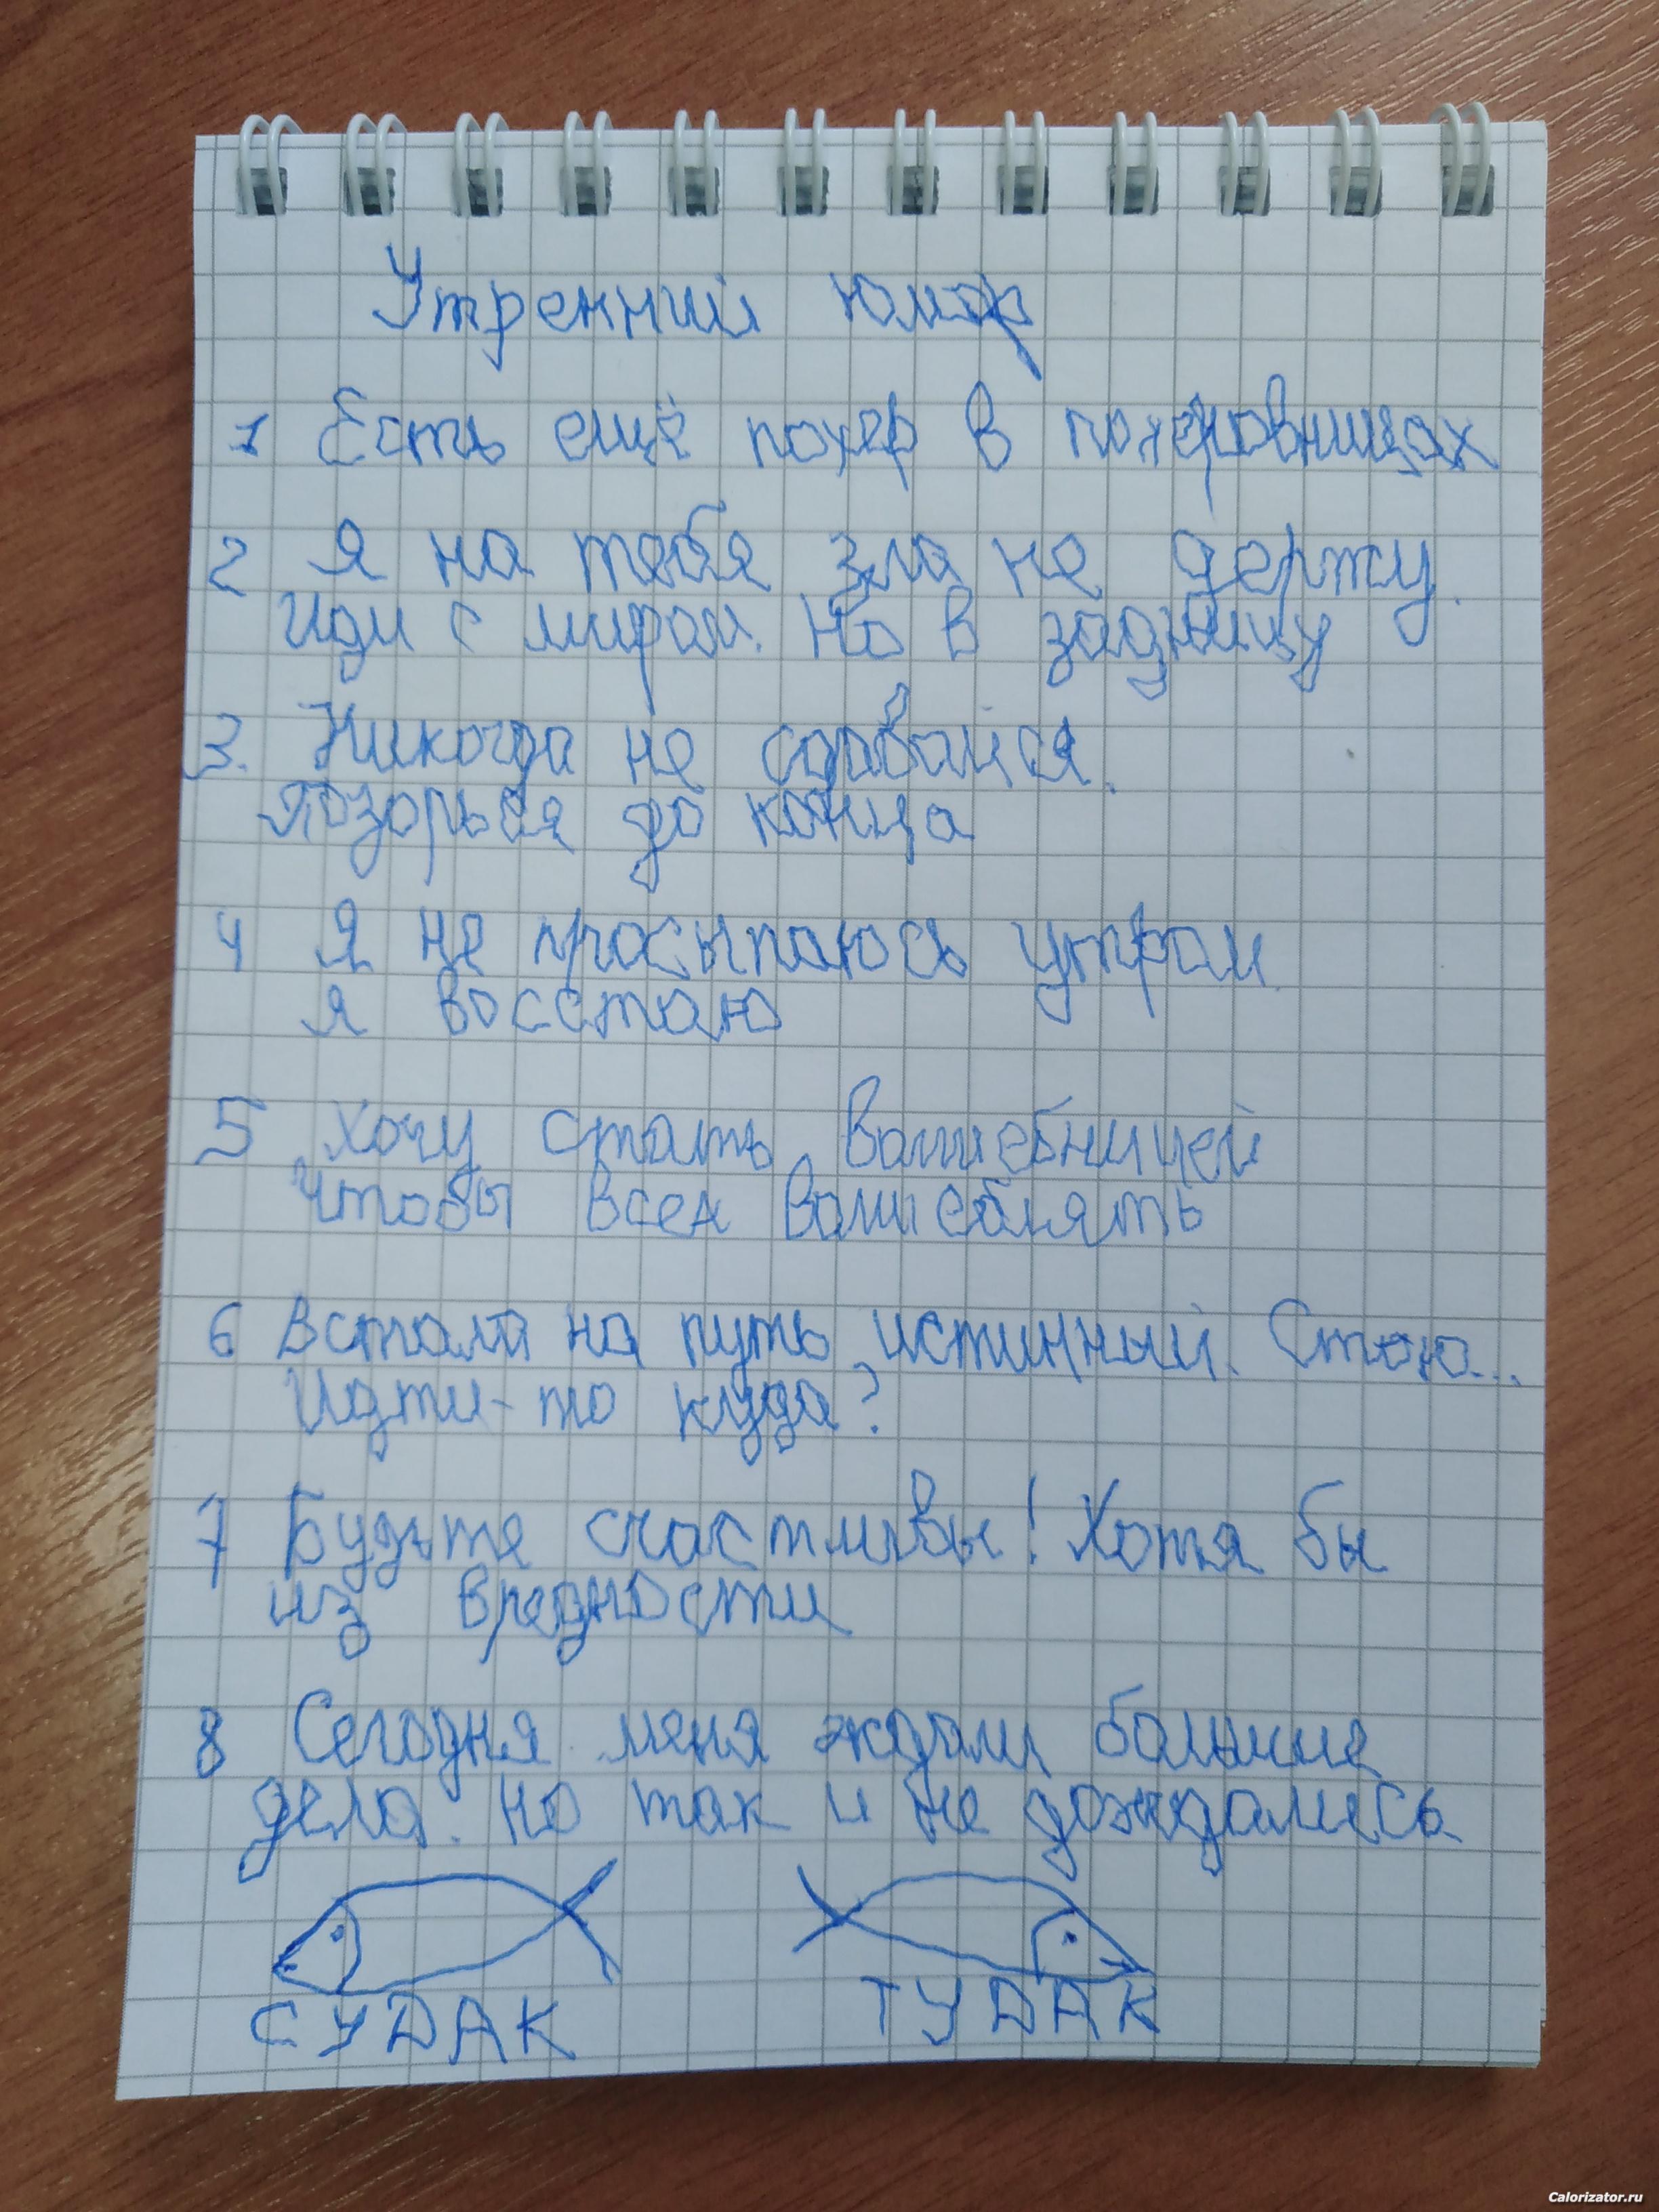 Утренний юмор
1 Есть ещё похер в похеровницах
2 Я на тебя зла не держу.
Иди с миром. Но в задницу
3. Никогда не сдавайся.
Позорься до конца
4 Я не просыпаюсь утром.
я восстаю
5 Хочу стать волшебницей
Чтобы всех волшеблять
6 Встала на путь истинный. Стою...
Идти-то куда?
7 Будьте счастливы! Хотя бы
из вредности
8 Сегодня меня ждали большие
дела. но так и не дождались
СУДАК ТУДАК
Calorizator.ru